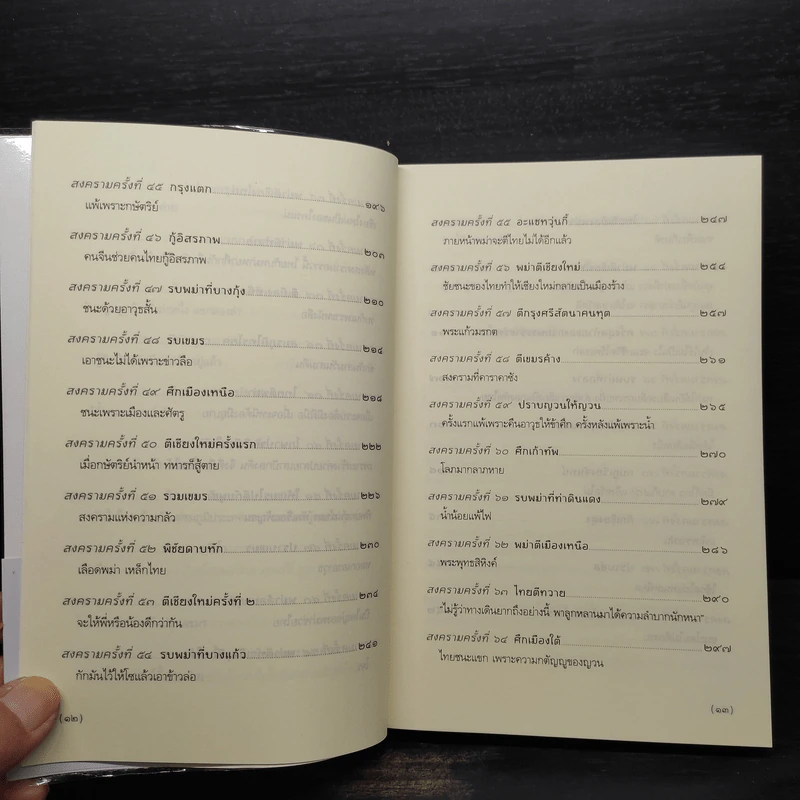 สงครามครั้งที่ ๔๕ กรุงแตก ๑๙๖
แพ้เพราะกษัตริย์
สงครามครั้งที่ ๔๖ กู้อิสรภาพ ๒๐๓
คนจีนช่วยคนไทยกู้อิสรภาพ
สงครามครั้งที่ ๔๗ รบพม่าที่บางกุ้ง ๒๑๐
ชนะด้วยอาวุธสั้น
สงครามครั้งที่ ๔๘ รบเขมร ๒๑๔
เอาชนะไม่ได้เพราะข่าวลือ
สงครามครั้งที่ ๔๙ ศึกเมืองเหนือ ๒๑๘
ชนะเพราะเมืองและศัตรู
สงครามครั้งที่ ๕๐ ตีเชียงใหม่ครั้งแรก ๒๒๒
เมื่อกษัตริย์นำหน้า ทหารก็สู้ตาย
สงครามครั้งที่ ๕๑ รวมเขมร ๒๒๖
สงครามแห่งความกลัว
สงครามครั้งที่ ๕๒ พิชัยดาบหัก ๒๓๐
เลือดพม่า เหล็กไทย
สงครามครั้งที่ ๕๓ ตีเชียงใหม่ครั้งที่ ๒ ๒๓๔
จะให้พี่หรือน้องดีกว่ากัน
สงครามครั้งที่ ๕๔ รบพม่าที่บางแก้ว ๒๔๑
กักมันไว้ให้โซแล้วเอาข้าวล่อ
(๑๒)
สงครามครั้งที่ ๕๕ อะแซหวุ่นกี้ ๒๔๗
ภายหน้าพม่าจะตีไทยไม่ได้อีกแล้ว
สงครามครั้งที่ ๕๖ พม่าตีเชียงใหม่ ๒๕๔
ชัยชนะของไทยทำให้เชียงใหม่กลายเป็นเมืองร้าง
สงครามครั้งที่ ๕๗ ตีกรุงศรีสัตนาคนหุต ๒๕๗
พระแก้วมรกต
สงครามครั้งที่ ๕๘ ตีเขมรค้าง ๒๖๑
สงครามที่คาราคาซัง
สงครามครั้งที่ ๕๙ ปราบญวนให้ญวน ๒๖๕
ครั้งแรกแพ้เพราะคืนอาวุธให้ข้าศึก ครั้งหลังแพ้เพราะน้ำ
สงครามครั้งที่ ๖๐ ศึกเก้าทัพ ๒๗๐
โลภมากลาภหาย
สงครามครั้งที่ ๖๑ รบพม่าที่ท่าดินแดง ๒๗๙
น้ำน้อยแพ้ไฟ
สงครามครั้งที่ ๖๒ พม่าตีเมืองเหนือ ๒๘๖
พระพุทธสิหิงค์
สงครามครั้งที่ ๖๓ ไทยตีทวาย ๒๙๐
"ไม่รู้ว่าทางเดินยากถึงอย่างนี้ พาลูกหลานมาได้ความลำบากนักหนา"
สงครามครั้งที่ ๖๔ ศึกเมืองใต้ ๒๙๗
ไทยชนะแขก เพราะความกตัญญูของญวน
(๑๓)